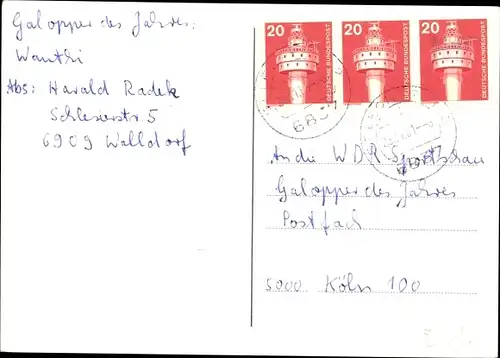 Galopper des Jahres:
Wauthi
Abs: Harald Radek
Schlesierstr. 5
6909 Walldorf
20 DEUTSCHE BUNDESPOST
20 DEUTSCHE BUNDESPOST
20 DEUTSCHE BUNDESPOST
An die WDR Sportschau
Galopper des Jahres
Postfach
5000 Köln 100